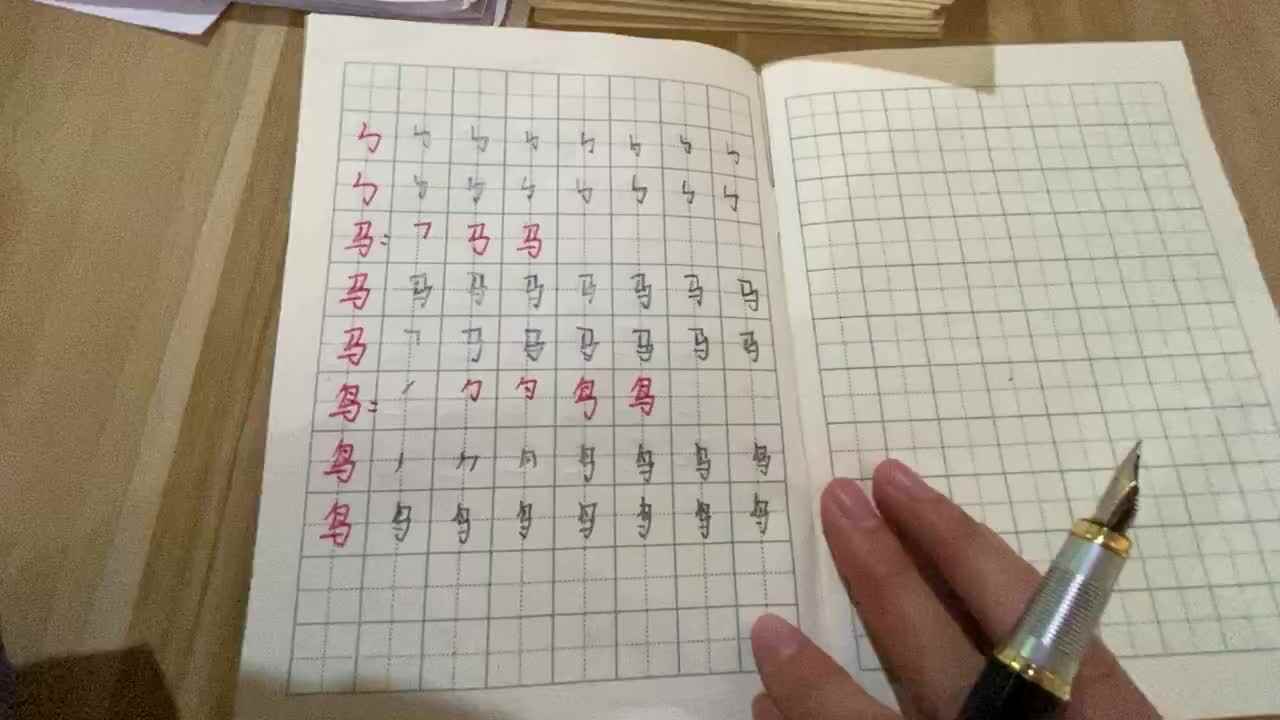 ㇉ ㇉ ㇉ ㇉ ㇉ ㇉ ㇉ ㇉
㇉ ㇉ ㇉ ㇉ ㇉ ㇉ ㇉ ㇉
马: ㇕ 马 马
马 马 马 马 马 马 马 马
马 ㇕ 马 马 马 马 马
鸟: ㇒ 勹 勺 鸟 鸟
鸟 ㇒ 鸟 鸟 鸟 鸟
鸟 鸟 鸟 鸟 鸟 鸟 鸟 鸟